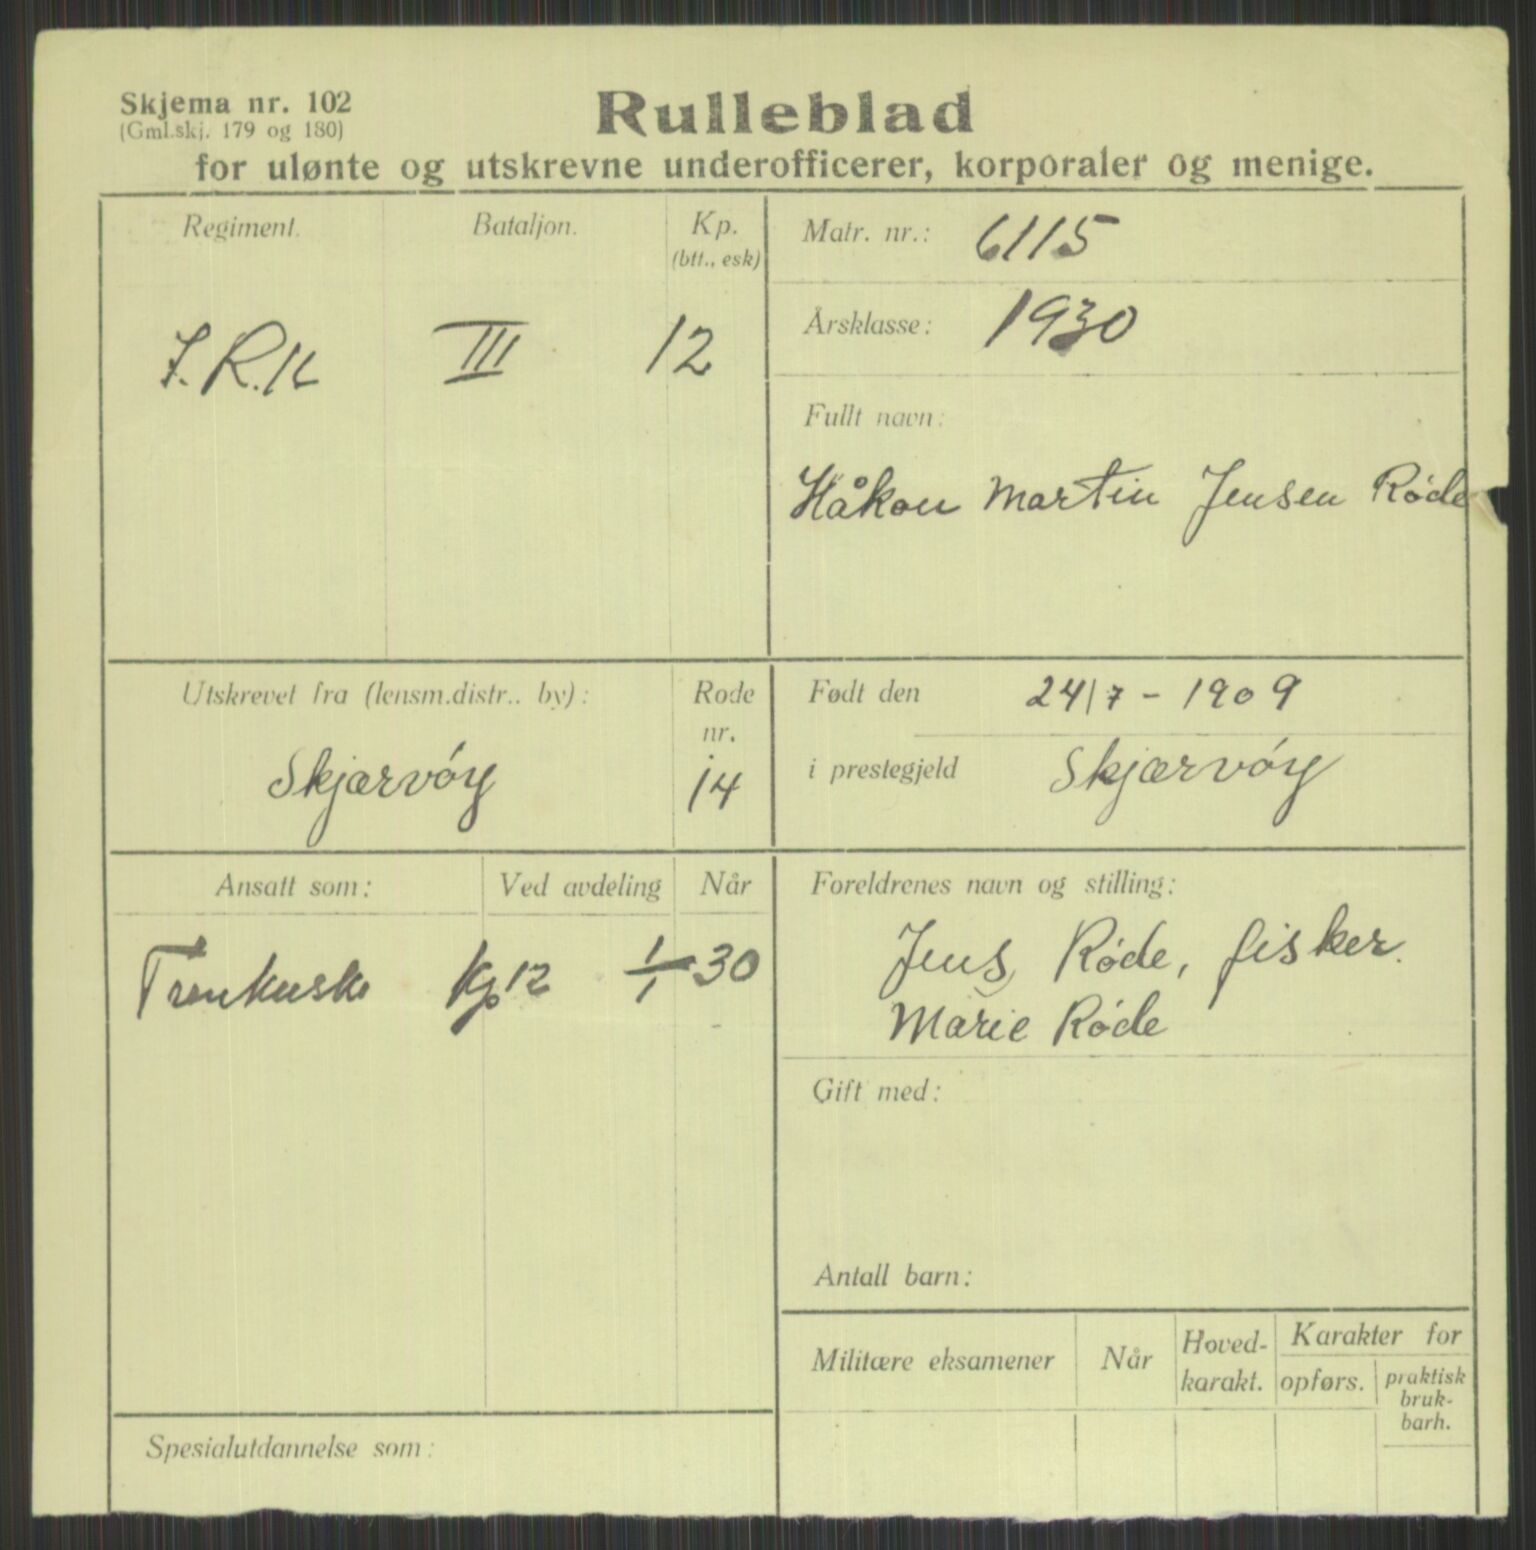 Skjema nr. 102
(Gml.skj. 179 og 180)
Rulleblad
for ulønte og utskrevne underofficerer, korporaler og menige.
Regiment.
Bataljon.
Kp.
(btt., esk)
I.R.16
III
12
Matr. nr.: 6115
Årsklasse: 1930
Fullt navn:
Håkon Martin Jensen Røde
Utskrevet fra (lensm.distr.. by):
Skjærvöy
Rode
nr.
14
Født den 24/7 - 1909
i prestegjeld Skjærvöy
Ansatt som:
Ved avdeling
Når
Trenkusk Kp 12 1/1 30
Foreldrenes navn og stilling:
Jens Røde, fisker.
Marie Røde
Gift med:
Antall barn:
Militære eksamener
Når
Hoved-
karakt.
Karakter for
opførs.
praktisk
bruk-
barh.
Spesialutdannelse som: